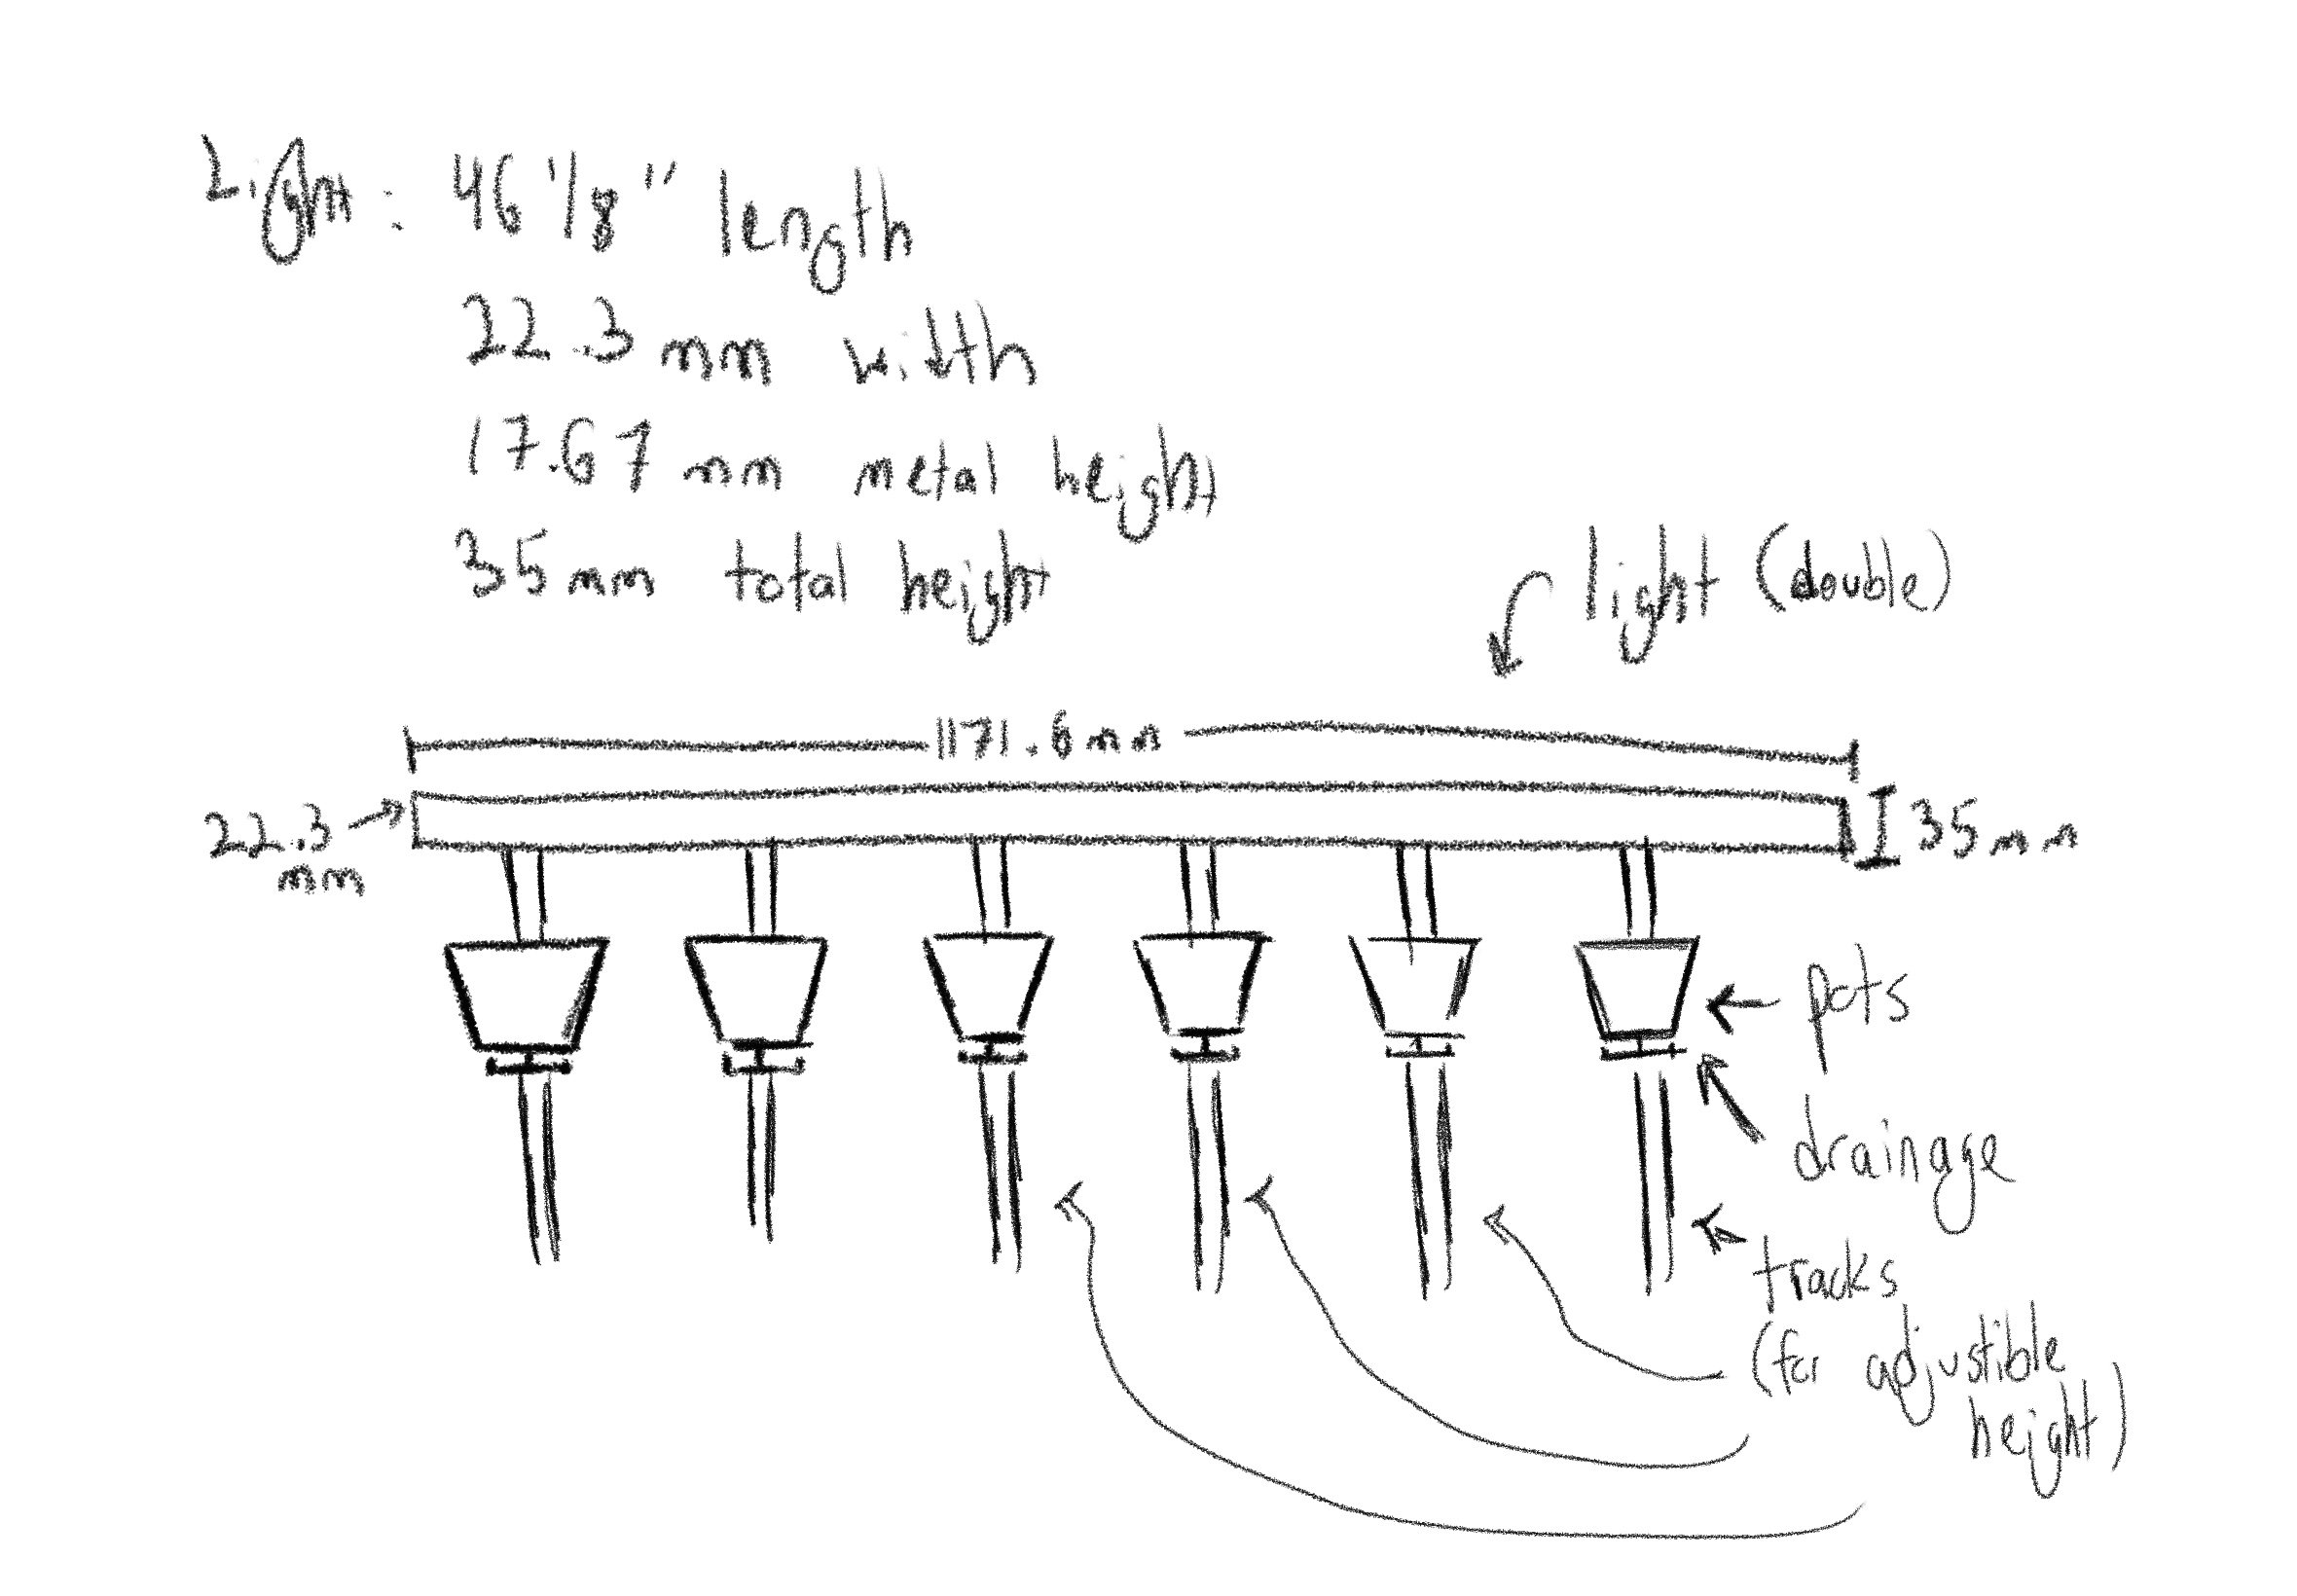 Light: 46 1/8" length
22.3 mm width
17.67 mm metal height
35mm total height
light (double)
1171.6mm
22.3
mm
35mm
pots
drainage
tracks
(for adjustible
height)